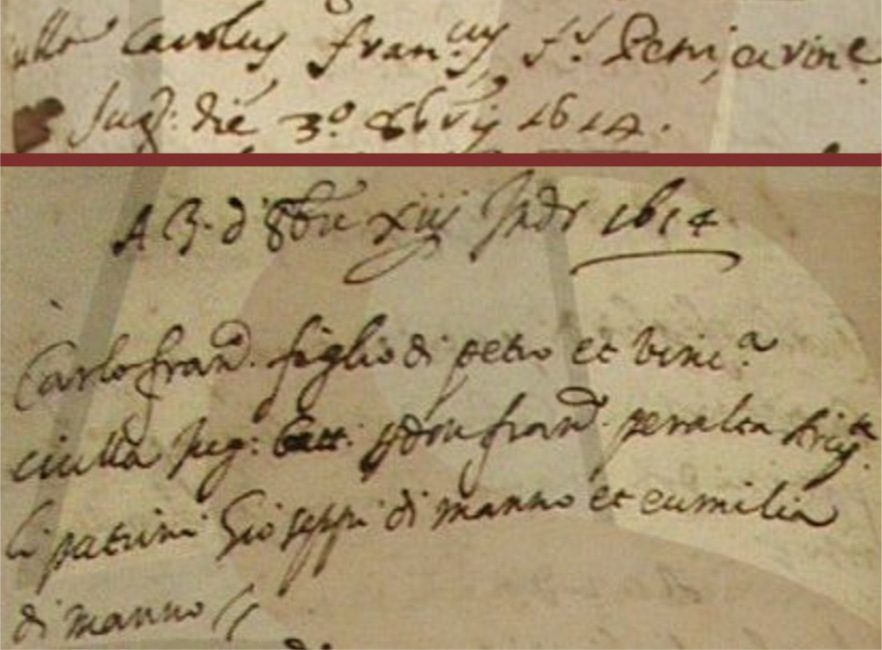 ciulla Carolus Fran.cus f.s Petri, et vinc.
Jug: die 3º 8bris 1614.
A 3 d 8bre xiij Indi 1614
Carlo fran.º figlio di petro et vinc.ª
ciulla jug: batt: p don fran.º peralta
li patrini Gioseppi di manno et eumilia
di manno